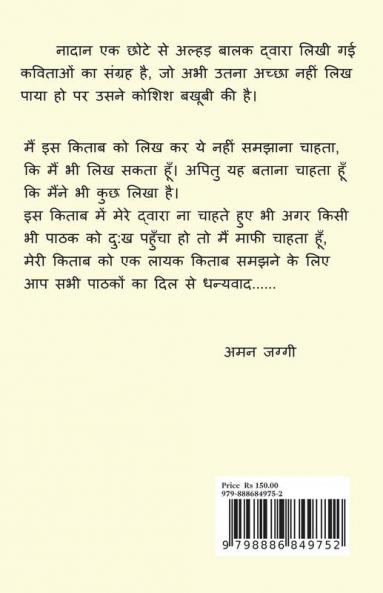 नादान एक छोटे से अल्हड़ बालक द्वारा लिखी गई
कविताओं का संग्रह है, जो अभी उतना अच्छा नहीं लिख
पाया हो पर उसने कोशिश बखूबी की है।
मैं इस किताब को लिख कर ये नहीं समझाना चाहता,
कि मैं भी लिख सकता हूँ। अपितु यह बताना चाहता हूँ
कि मैंने भी कुछ लिखा है।
इस किताब में मेरे द्वारा ना चाहते हुए भी अगर किसी
भी पाठक को दु:ख पहुँचा हो तो मैं माफी चाहता हूँ,
मेरी किताब को एक लायक किताब समझने के लिए
आप सभी पाठकों का दिल से धन्यवाद......
अमन जग्गी
Price Rs 150.00
979-888684975-2
9 798886 849752